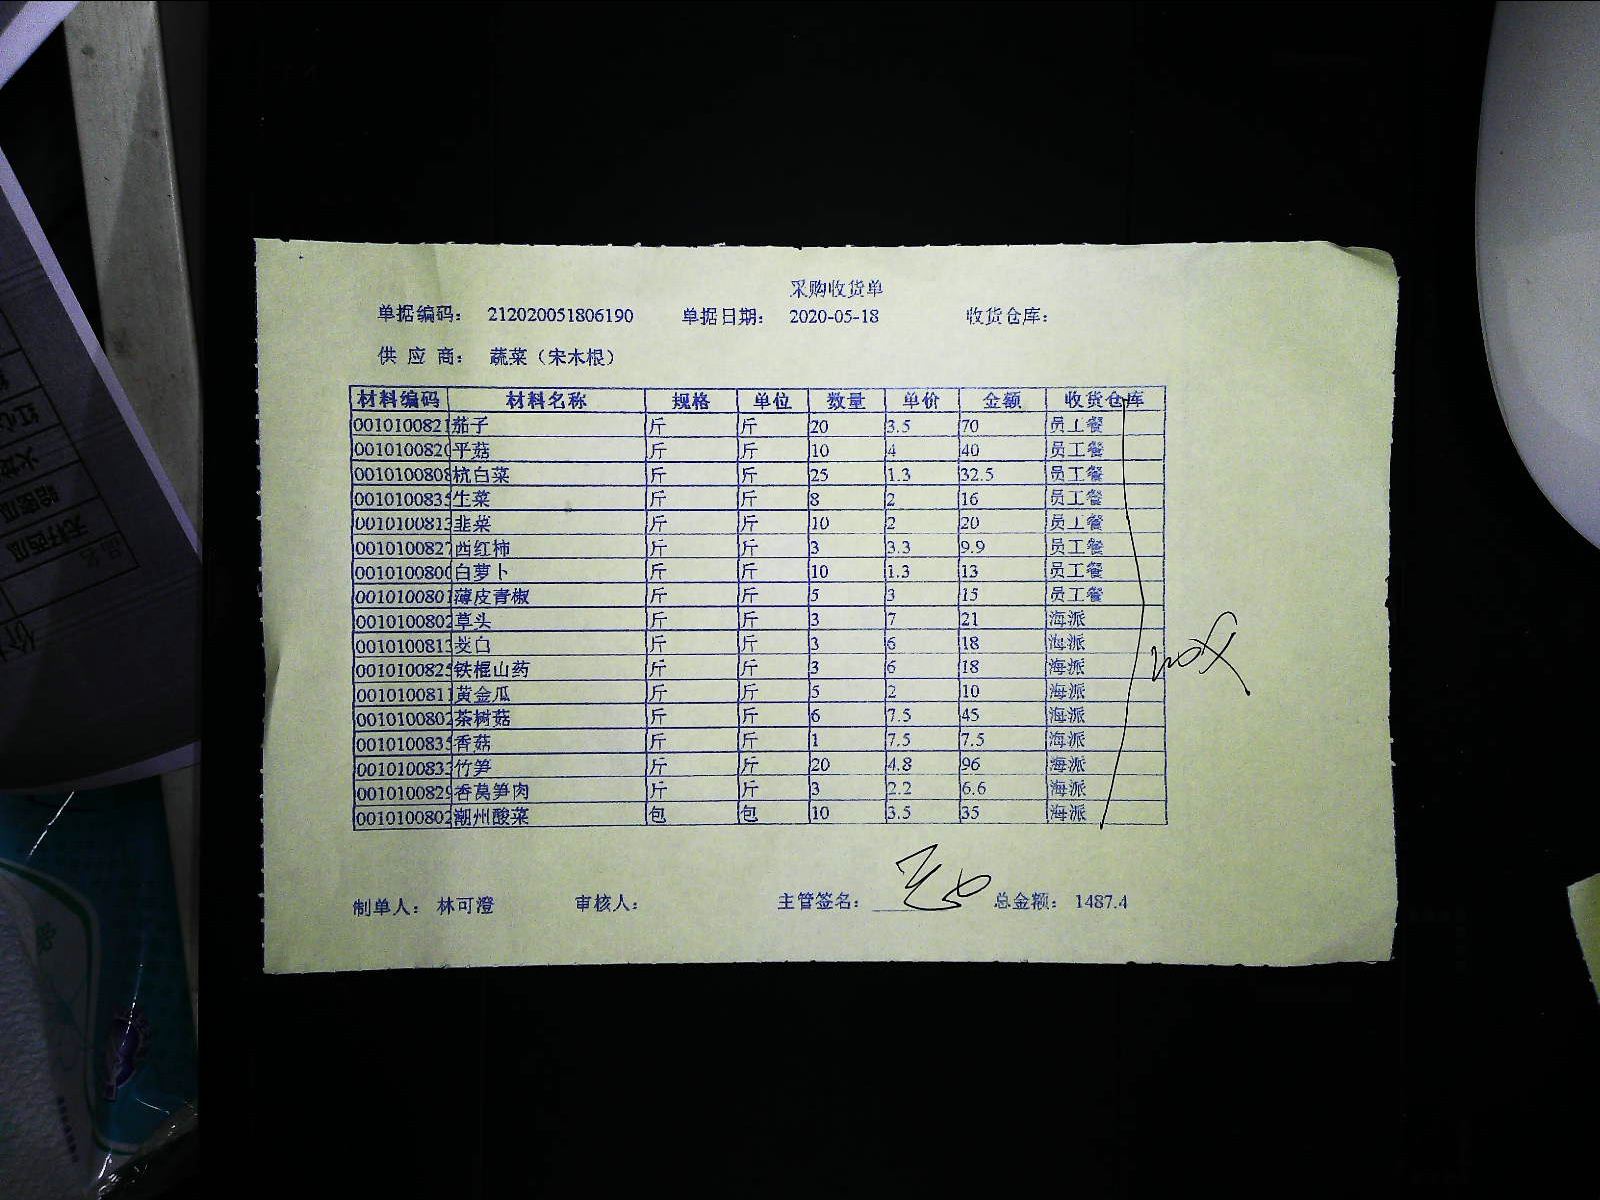 采购收货单
单据编码： 212020051806190 单据日期： 2020-05-18 收货仓库：
供 应 商： 蔬菜（宋木根）
材料编码 材料名称 规格 单位 数量 单价 金额 收货仓库
0010100821 茄子 斤 斤 20 3.5 70 员工餐
001010082 平菇 斤 斤 10 4 40 员工餐
001010080 杭白菜 斤 斤 25 1.3 32.5 员工餐
001010083 生菜 斤 斤 8 2 16 员工餐
001010081 韭菜 斤 斤 10 2 20 员工餐
001010082 西红柿 斤 斤 3 3.3 9.9 员工餐
001010080 白萝卜 斤 斤 10 1.3 13 员工餐
0010100801 薄皮青椒 斤 斤 5 3 15 员工餐
001010080 草头 斤 斤 3 7 21 海派
001010081 茭白 斤 斤 3 6 18 海派
001010082 铁棍山药 斤 斤 3 6 18 海派
0010100811 黄金瓜 斤 斤 5 2 10 海派
001010080 茶树菇 斤 斤 6 7.5 45 海派
001010083 香菇 斤 斤 1 7.5 7.5 海派
001010083 竹笋 斤 斤 20 4.8 96 海派
001010082 香莴笋肉 斤 斤 3 2.2 6.6 海派
001010080 潮州酸菜 包 包 10 3.5 35 海派
制单人： 林可澄 审核人： 主管签名： 总金额： 1487.4